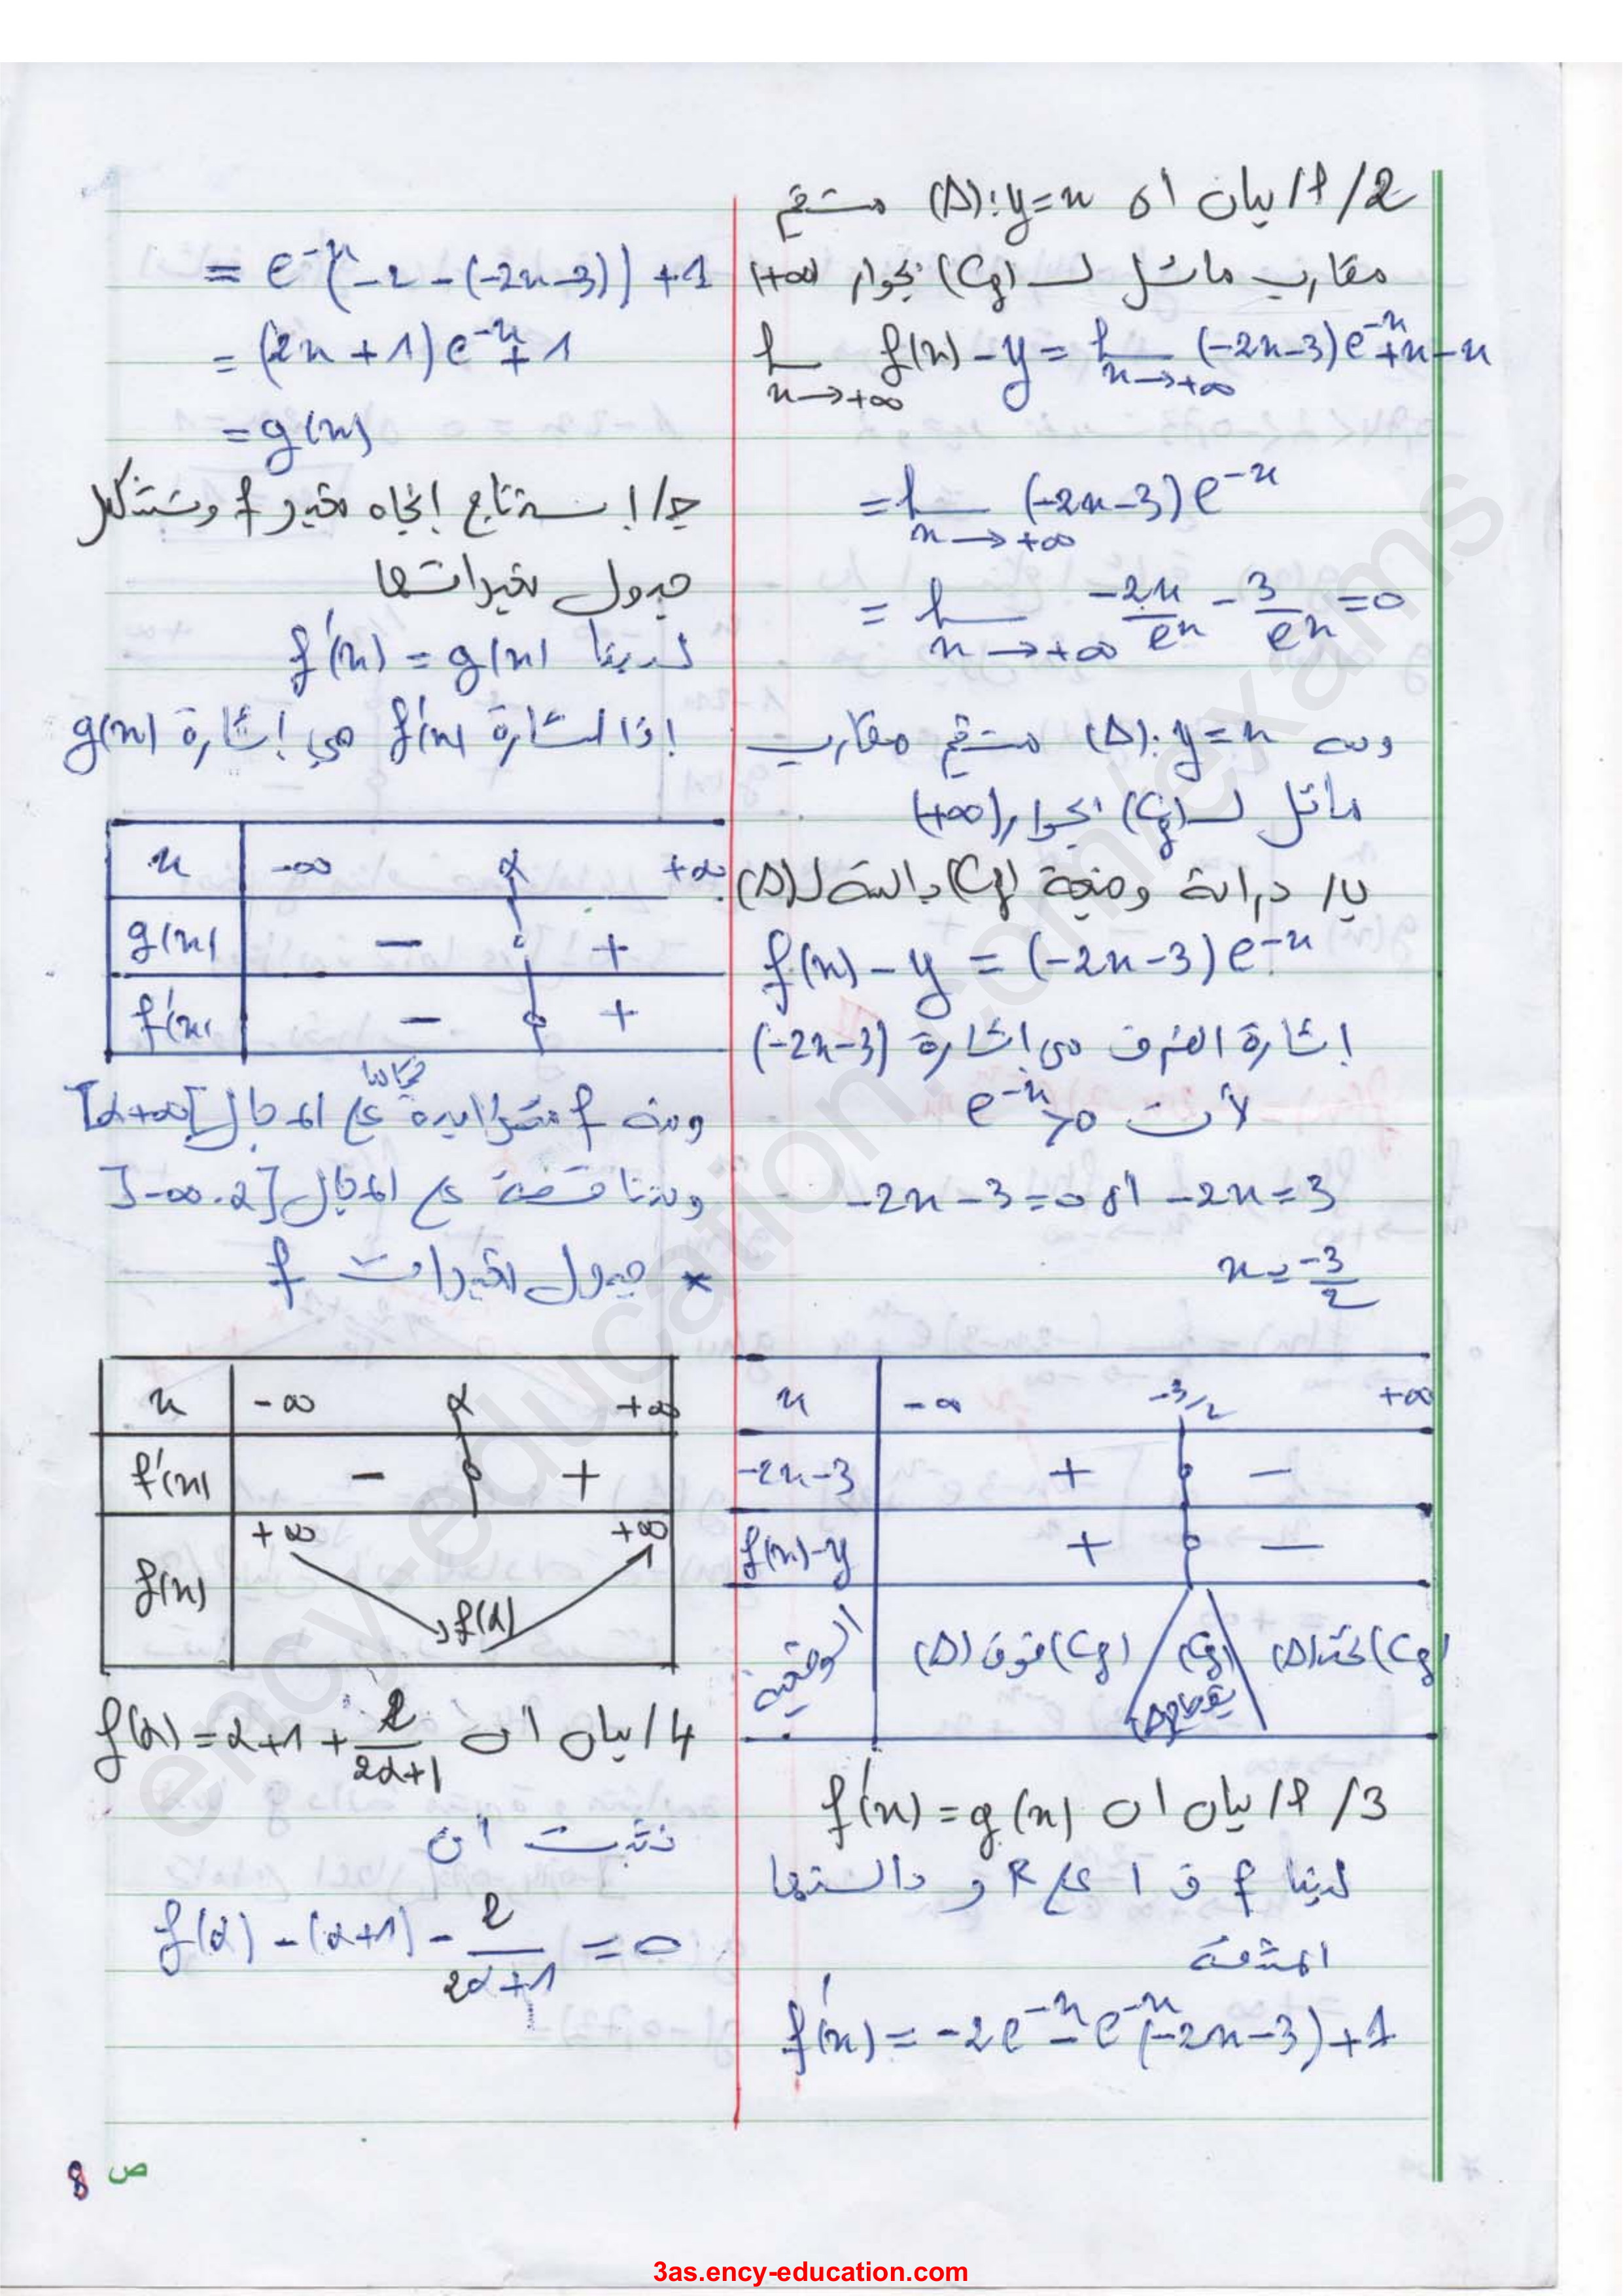 2/ أ/ بيان ان (Δ): y=x مستقيم
مقارب مائل لـ (Cf) بجوار (+∞
lim x→+∞ f(x) - y = lim x→+∞ (-2x-3)e^-x + x - x
= lim x→+∞ (-2x-3)e^-x
= lim x→+∞ -2x/e^x - 3/e^x = 0
ومنه (Δ): y=x مستقيم مقارب
مائل لـ (Cf) بجوار (+∞)
ب/ دراسة وضعية (Cf) بالنسبة لـ (Δ)
f(x) - y = (-2x-3)e^-x
إشارة الفرق من إشارة (-2x-3)
لأن e^-x > 0
-2x-3=0 اي -2x=3
x = -3/2
x -∞ -3/2 +∞
-2x-3 + 0 -
f(x)-y + 0 -
الوضعية (Cf) فوق (Δ) (Cf) يقطع (Δ) (Cf) تحت (Δ)
3/ أ/ بيان ان f'(x) = g(x)
لدينا f ق ا على R و دالتها
المشتقة
f'(x) = -2e^-x - e^-x(-2x-3)+1
= e^-x[-2-(-2x-3)] +1
= (2x+1)e^-x + 1
= g(x)
ج/ استنتاج إتجاه تغير f وتشكيل
جدول تغيراتها
لدينا f'(x) = g(x)
اذا إشارة f'(x) هي إشارة g(x)
x -∞ α +∞
g(x) - 0 +
f'(x) - 0 +
ومنه f متزايدة تماما على المجال [α +∞[
ومتناقصة على المجال ]-∞ . α]
* جدول تغيرات f
x -∞ α +∞
f'(x) - 0 +
f(x) +∞ f(α) +∞
4/ بيان ان f(α) = α+1 + 2/(2α+1)
نثبت ان
f(α) - (α+1) - 2/(2α+1) = 0
ص 8
ency-education.com/exams
3as.ency-education.com